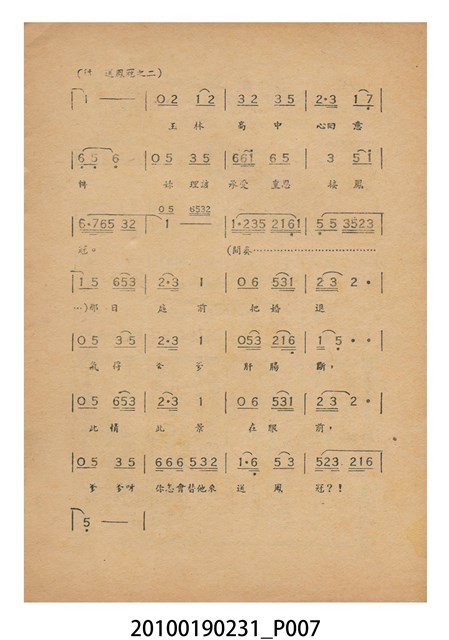 送鳳冠之二)
1 — —｜0 2 1 2｜3 2 3 5｜2·3 1 7｜
王 林 高 中 心回意
6 5 6｜0 5 3 5｜6 6 1 6 5｜3 5 1｜
轉 理該 承受 皇恩 接 鳳
6·765 32｜1 —｜1·235 2161｜5 5 3523｜
0 5 6532
冠。 (間奏…………………………
1 5 653｜2·3 1｜0 6 531｜2 3 2 ·｜
…)那 日 庭 前 把 婚 退
0 5 3 5｜2·3 1｜053 216｜1 5 ·｜
氣得 爹 爹 肝 腸 斷，
0 5 653｜2·3 1｜0 6 531｜2 3 2 ·｜
此 情 此 景 在 眼 前，
0 5 3 5｜666 532｜1·6 5 3｜523. 216｜
爹 爹呀 你怎會替他來 送 鳳 冠？！
5 — —｜
20100190231_P007